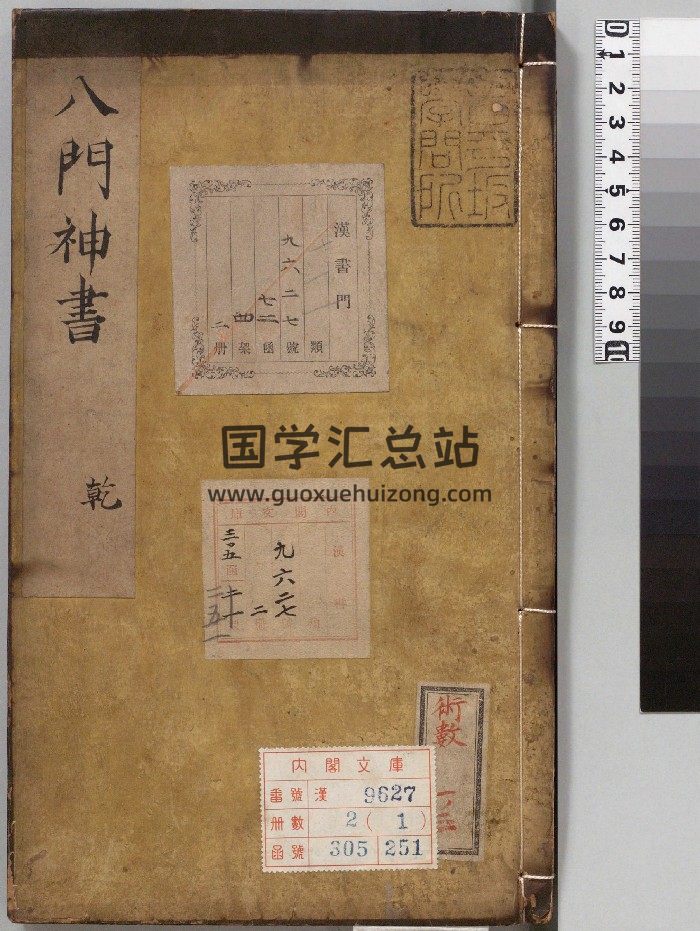 八門神書
乾
漢書門
九六二七
七二
二
類
號
函
架
册
国学汇总站
www.guoxuehuizong.com
漢
九六二七
二
三〇五
術數
内閣文庫
番號 漢 9627
册數 2(1)
函號 305 251
0 1 2 3 4 5 6 7 8 9 10